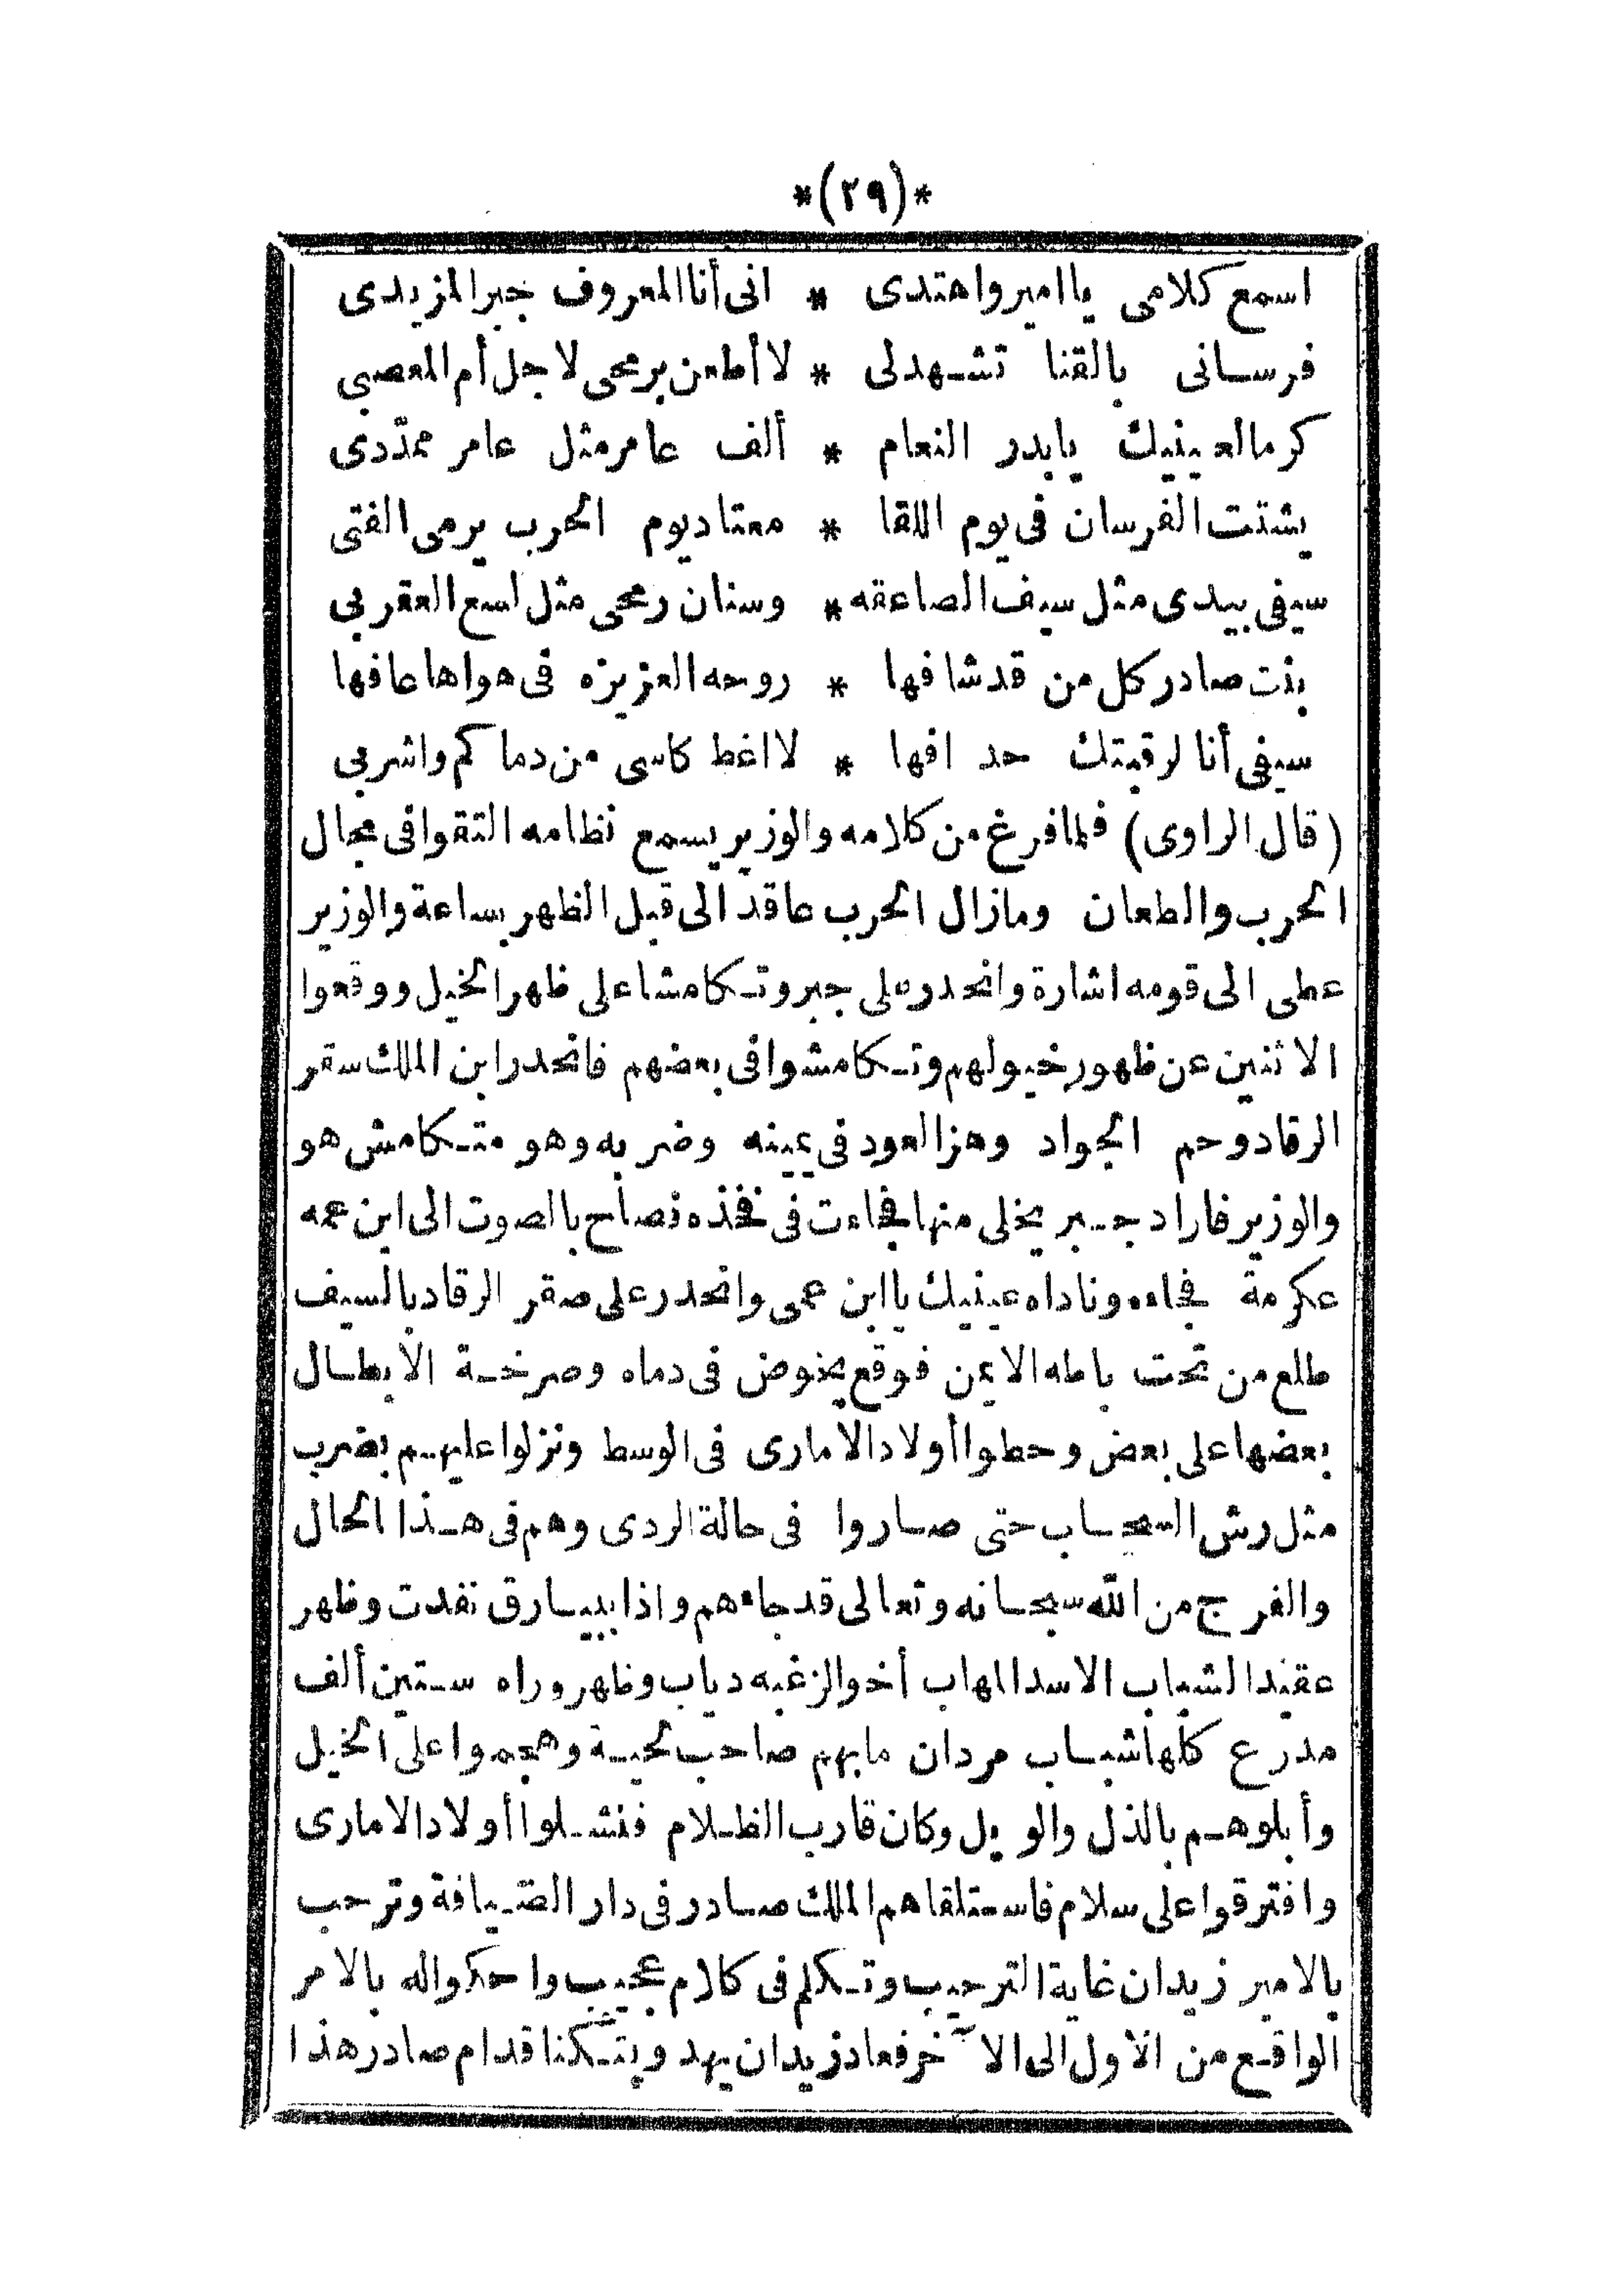 *(٢٩)*
اسمع كلامى يا امير واهتدى * انى أنا المعروف جبر المزيدى
فرسانى بالقنا تشهدلى * لا أطعن برمحى لاجل أم المعصبى
كرما لعينيك يابدر النعام * ألف عامر مثل عامر ممدّدى
يشتت الفرسان فى يوم اللقا * معتاد يوم الحرب يرمى الفتى
سيفى بيدى مثل سيف الصاعقه * وسنان رمحى مثل لسع العقربى
بنت صادر كل من قد شافها * روحه العزيزه فى هواها عافها
سيفى أنا لرقبتك حد افها * لا اغط كاسى من دماكم واشربى
(قال الراوى) فلما فرغ من كلامه والوزير يسمع نظامه التقوا فى مجال
الحرب والطعان ومازال الحرب عاقد الى قبل الظهر بساعة والوزير
عطى الى قومه اشارة وانحدر على جبر وتكامشا على ظهر الخيل ووقعوا
الاثنين عن ظهور خيولهم وتكامشوا فى بعضهم فانحدر ابن الملك سقر
الرقاد وحم الجواد وهز العود فى يمينه وضربه وهو متكامش هو
والوزير فاراد جبر يخلى منها فجاءت فى فخذه فصاح بالصوت الى ابن عمه
عكرمة فجاءه وناداه عينيك يا ابن عمى وانحدر على صقر الرقاد بالسيف
طلع من تحت باطه الايمن فوقع يخوض فى دماه وصرخة الابطال
بعضها على بعض وحطوا أولاد الامارى فى الوسط ونزلوا عليهم بضرب
مثل رش السحاب حتى صاروا فى حالة الردى وهم فى هذا الحال
والفرج من الله سبحانه وتعالى قد جاءهم واذا ببيارق نفدت وظهر
عقيد الشباب الاسد المهاب أخو الزغبه دياب وظهر وراه ستين ألف
مدرع كلها شباب مردان مابهم صاحب لحية وهجموا على الخيل
وأبلوهم بالذل والويل وكان قارب الظلام فنشلوا أولاد الامارى
وافترقوا على سلام فاستلقاهم الملك صادر فى دار الضيافة وترحب
بالامير زيدان غاية الترحيب وتكلم فى كلام عجيب واحكواله بالامر
الواقع من الاول الى الآخر فعاد زيدان يهد ويتكنا قدام صادر هذا